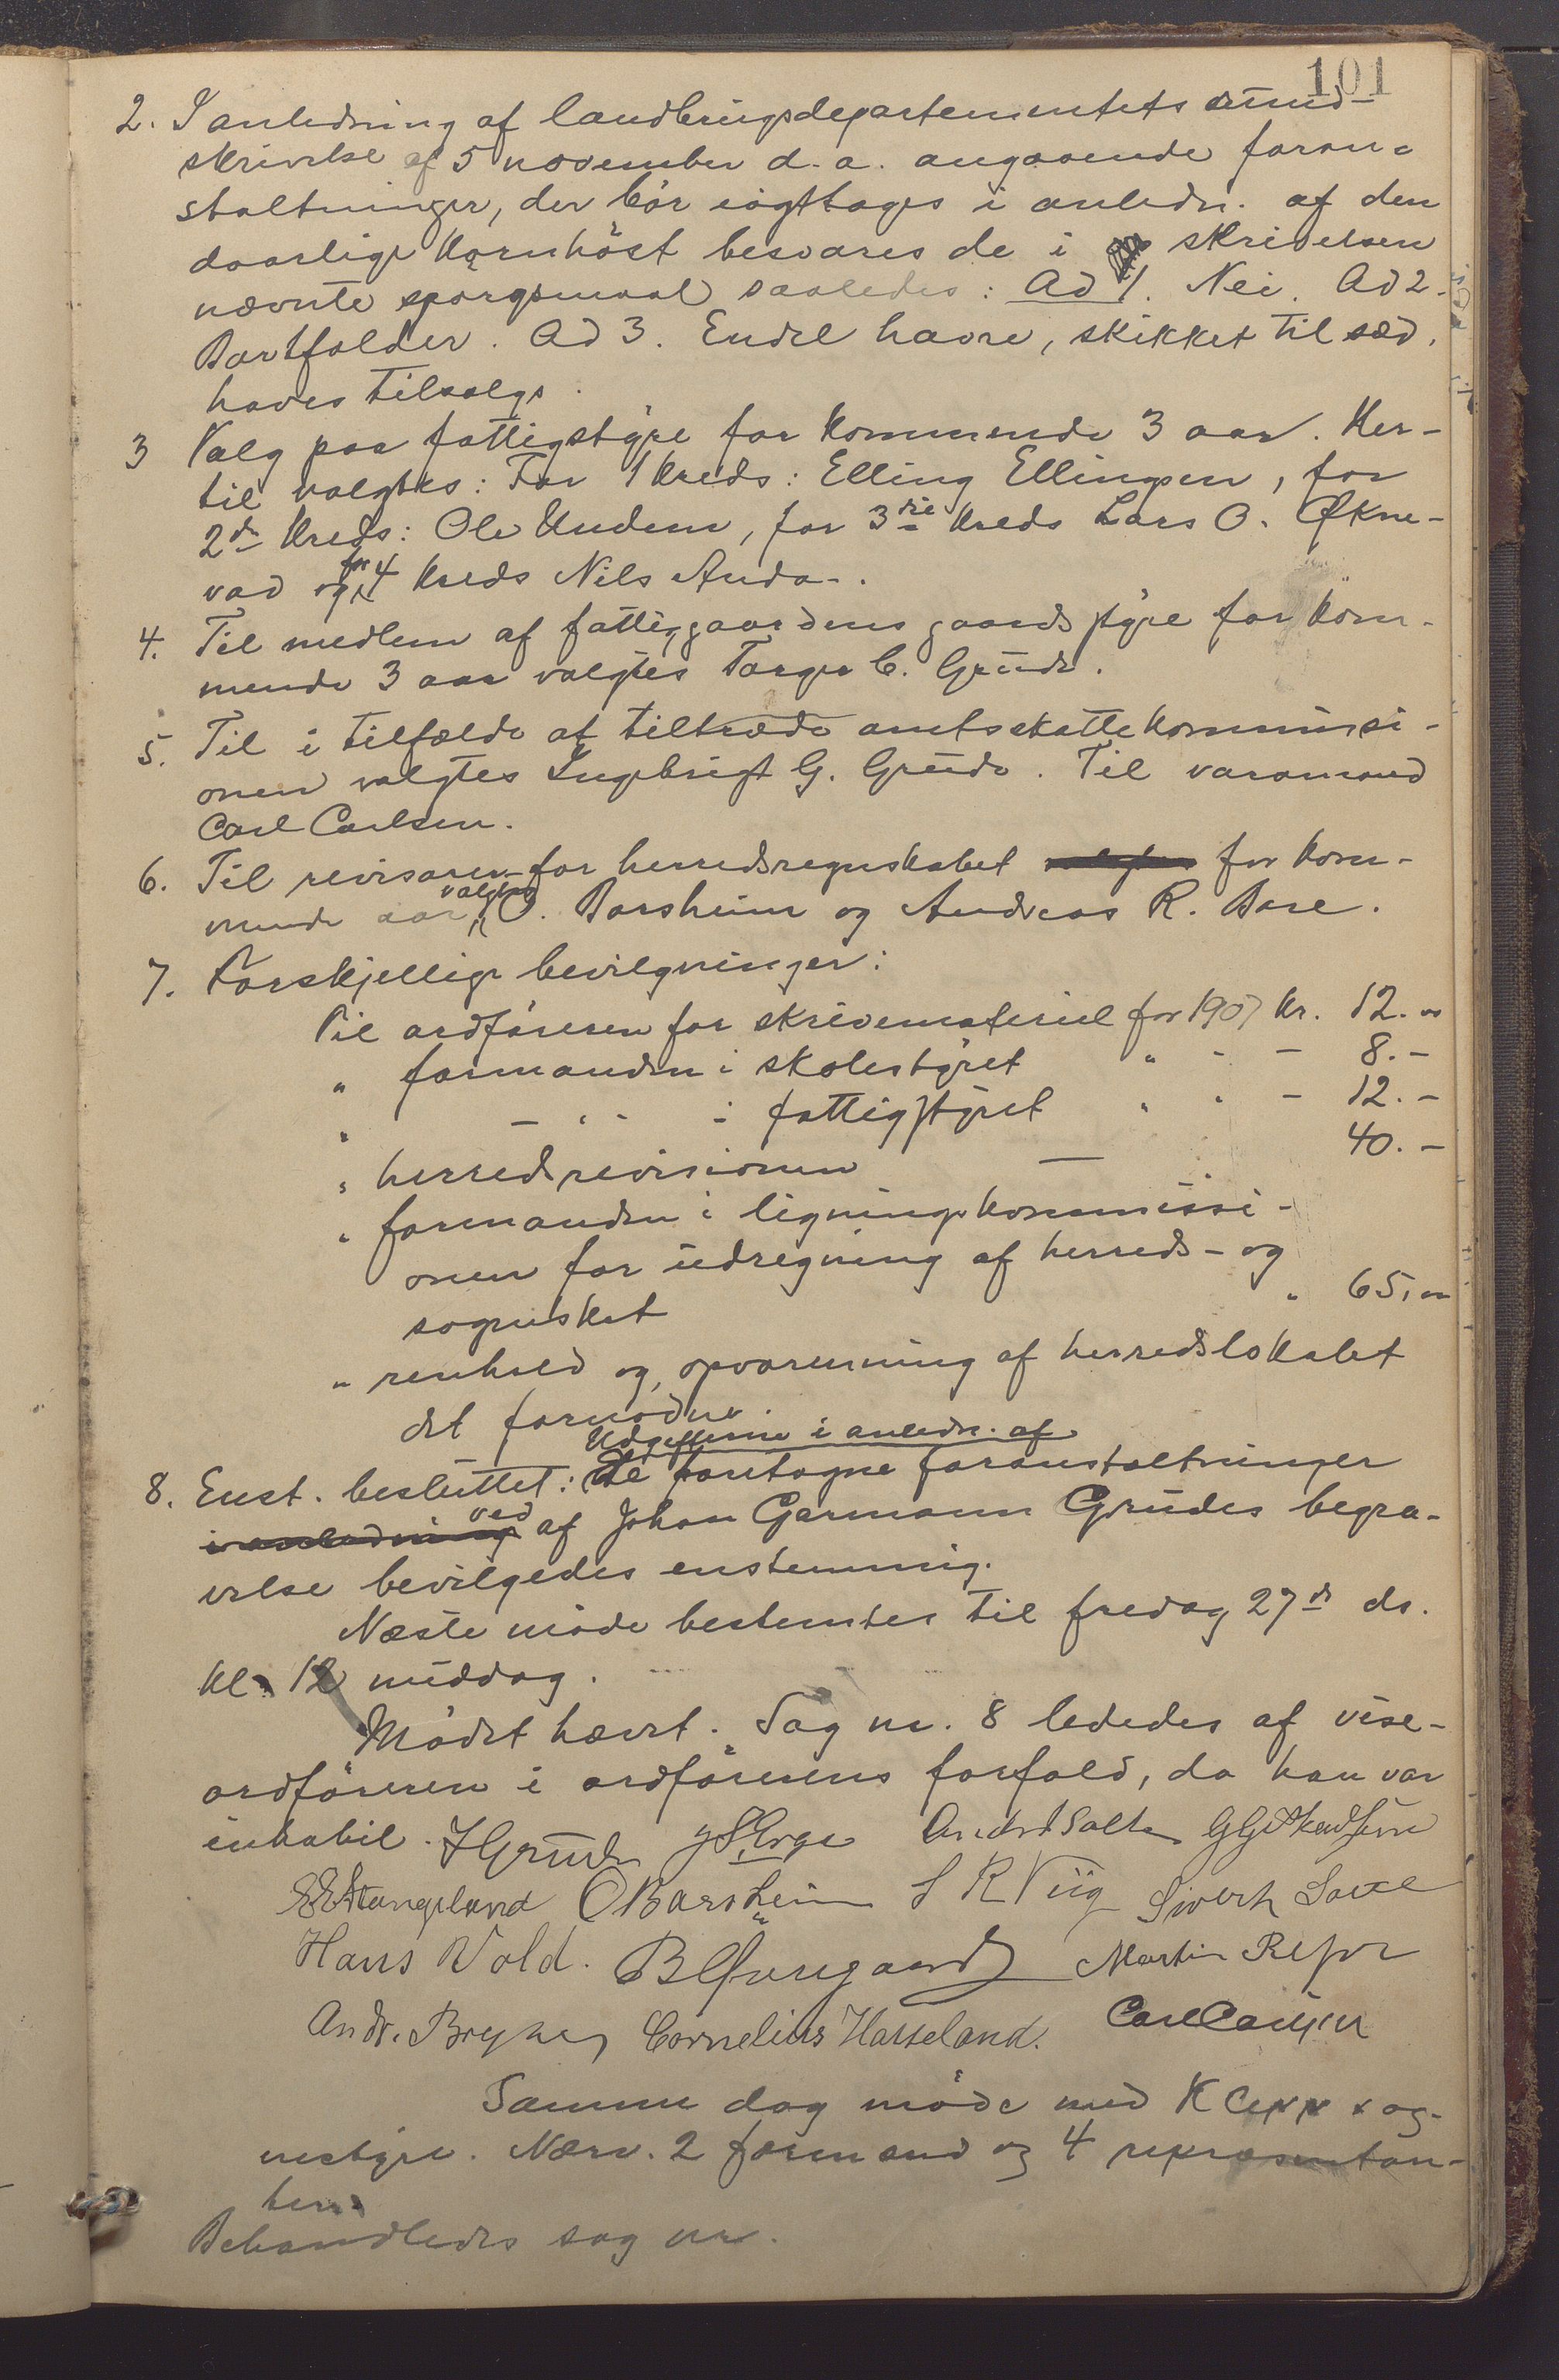 101
2. I anledning af landbrugsdepartementets rund-
skrivelse af 5 november d. a. angaaende foran-
staltninger, der bør iagttages i anledn. af den
daarlige kornhöst besvares de i skrivelsen
nævnte spørgsmaal saaledes: Ad 1. Nei. Ad 2.
Bortfalder. Ad 3. Endel havre, skikket til sæd,
haves tilsalgs.
3 Valg paa fattigstyre for kommende 3 aar. Her-
til valgtes: For 1 kreds: Elling Ellingsen, for
2den kreds: Ole Undem, for 3die kreds Lars O. Økne-
vad og for 4 kreds Nils Anda.
4. Til medlem af fattiggaardens gaardsstyre for kom-
mende 3 aar valgtes Torger C. Grude.
5. Til i tilfælde at tiltræde amtsskattekommissi-
onen valgtes Ingebrigt G. Grude. Til varamand
Carl Carlsen.
6. Til revisorer for herredsregnskabet for kom-
mende aar valgtes O. Borsheim og Andreas R. Bore.
7. Forskjellige bevilgninger:
Til ordföreren for skrivemateriel for 1907 kr. 12. 00
" formanden i skolestyret " - - 8. -
" - " - i fattigstyret " " - 12. -
" herredsrevisionen — 40. -
" formanden i ligningskommissi-
onen for udregning af herreds- og
sogneskat " 65,00
" renhold og opvarmning af herredslokalet
det fornødne.
Udgifterne i anledn. af
8. Enst. besluttet: De foretagne foranstaltninger
i anledning ved af Johan Garmann Grudes begra-
velse bevilgedes enstemmig.
Næste møde bestemtes til fredag 27de ds.
kl. 12 middag.
Mödet hævet. Sag nr. 8 lededes af vise-
ordföreren i ordförerens forfald, da han var
inhabil. J Grude J S Erga Andr Salte
E E Stangeland O Barsheim S R Viig Sivert
Hans Vold. B Øvregaard Martin
Andr. Cornelius Hasseland. Carl Carlsen
Samme dag møde med Klepp sog-
nestyre. Nærv. 2 formænd og 4 repræsentan-
ter.
Behandledes sag nr.